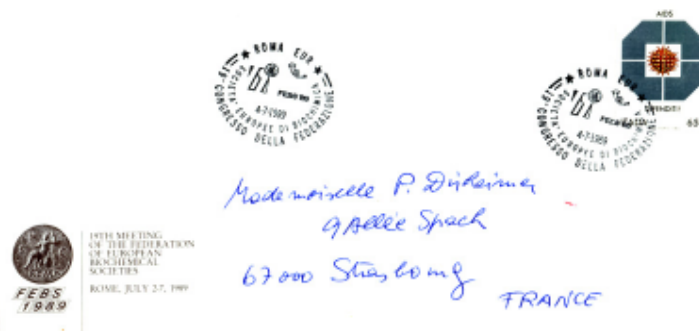 ★ ROMA EUR ★
19° CONGRESSO DELLA FEDERAZIONE
SOCIETA' EUROPEE DI BIOCHIMICA
4-7-1989
AIDS
ROMA EUR ★
19° CONGRESSO DELLA FEDERAZIONE
SOCIETA' EUROPEE DI BIOCHIMICA
4-7-1989
Mademoiselle P. Dirheimer
9 Allée Spach
67000 Strasbourg
FRANCE
19TH MEETING
OF THE FEDERATION
OF EUROPEAN
BIOCHEMICAL
SOCIETIES
ROME, JULY 2-7, 1989
FEBS
1989